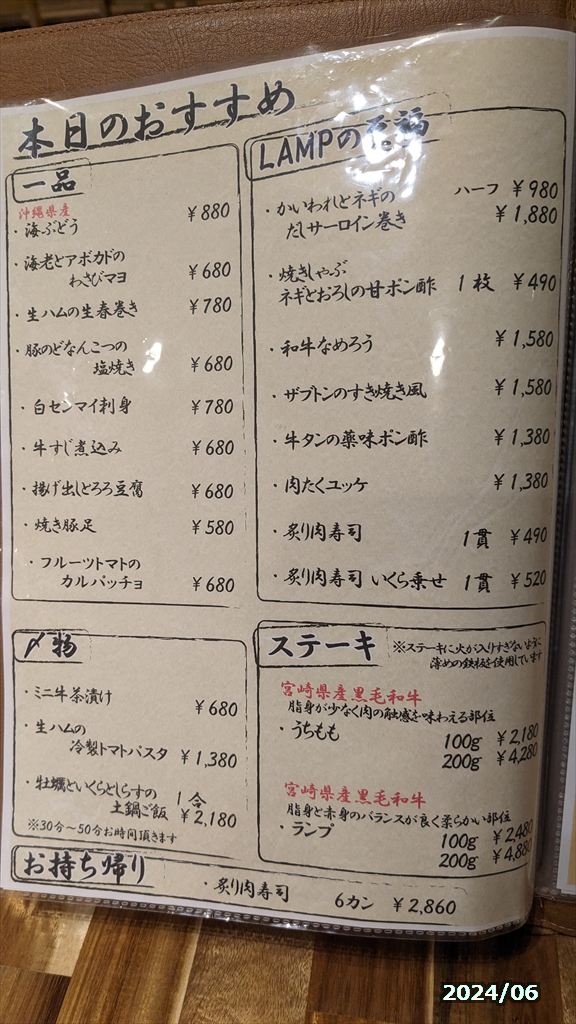 本日のおすすめ
一品
沖縄県産
・海ぶどう ¥880
・海老とアボカドの
わさびマヨ ¥680
・生ハムの生春巻き ¥780
・豚のどなんこつの
塩焼き ¥680
・白センマイ刺身 ¥780
・牛すじ煮込み ¥680
・揚げ出しとろろ豆腐 ¥680
・焼き豚足 ¥580
・フルーツトマトの
カルパッチョ ¥680
LAMPの
・かいわれとネギの ハーフ ¥980
だしサーロイン巻き ¥1,880
・焼きしゃぶ
ネギとおろしの甘ポン酢 1枚 ¥490
・和牛なめろう ¥1,580
・ザブトンのすき焼き風 ¥1,580
・牛タンの薬味ポン酢 ¥1,380
・肉たくユッケ ¥1,380
・炙り肉寿司 1貫 ¥490
・炙り肉寿司 いくら乗せ 1貫 ¥520
〆物
・ミニ牛茶漬け ¥680
・生ハムの
冷製トマトパスタ ¥1,380
・牡蠣といくらとしらすの 1合
土鍋ご飯 ¥2,180
※30分〜50分お時間頂きます
ステーキ
※ステーキに火が入りすぎないように
薄めの鉄板を使用しています
宮崎県産黒毛和牛
脂身が少なく肉の触感を味わえる部位
・うちもも 100g ¥2,180
200g ¥4,280
宮崎県産黒毛和牛
脂身と赤身のバランスが良く柔らかい部位
・ランプ 100g ¥2,480
200g ¥4,880
お持ち帰り
・炙り肉寿司 6カン ¥2,860
2024/06